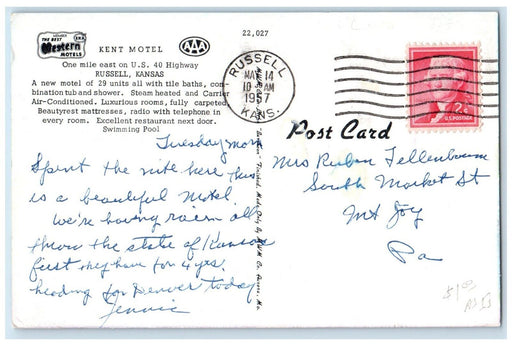 THE BEST
Western
MOTELS
AAA
22,027
KENT MOTEL
One mile east on U.S. 40 Highway
RUSSELL, KANSAS
A new motel of 29 units all with tile baths, com-
bination tub and shower. Steam heated and Carrier
Air-Conditioned. Luxurious rooms, fully carpeted
Beautyrest mattresses, radio with telephone in
every room. Excellent restaurant next door.
Swimming Pool
RUSSELL
MAY 14
10 AM
1957
KANS.
2¢
U.S. POSTAGE
Post Card
Tuesday morn
Spent the nite here this
is a beautiful Motel
we're having rain all
threw the state of Kansas
first they have for 4 yrs.
heading for Denver today
Jennie
Mrs Ruben Fellenbaum
South Market St
Mt Joy
Pa
$1.00